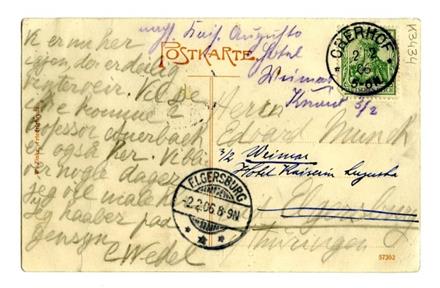 nach Kais. Augusta
Hotel
Weimar
POSTKARTE
K3434
OBERHOF
2 2
06
Vi er nu her
igjen, der er deilig
vinterveir. Vil De
ikke komme?
Professor Auerbach
er også her. Vi blir
her nogle dager
jeg vil male
Jeg haaber paa
gensyn
C Wedel
Herrn
Edvard Munch
3/2 Weimar
Hotel Kaiserin Augusta
Elgersburg
Thüringen
ELGERSBURG
2.2.06.8-9N
57302